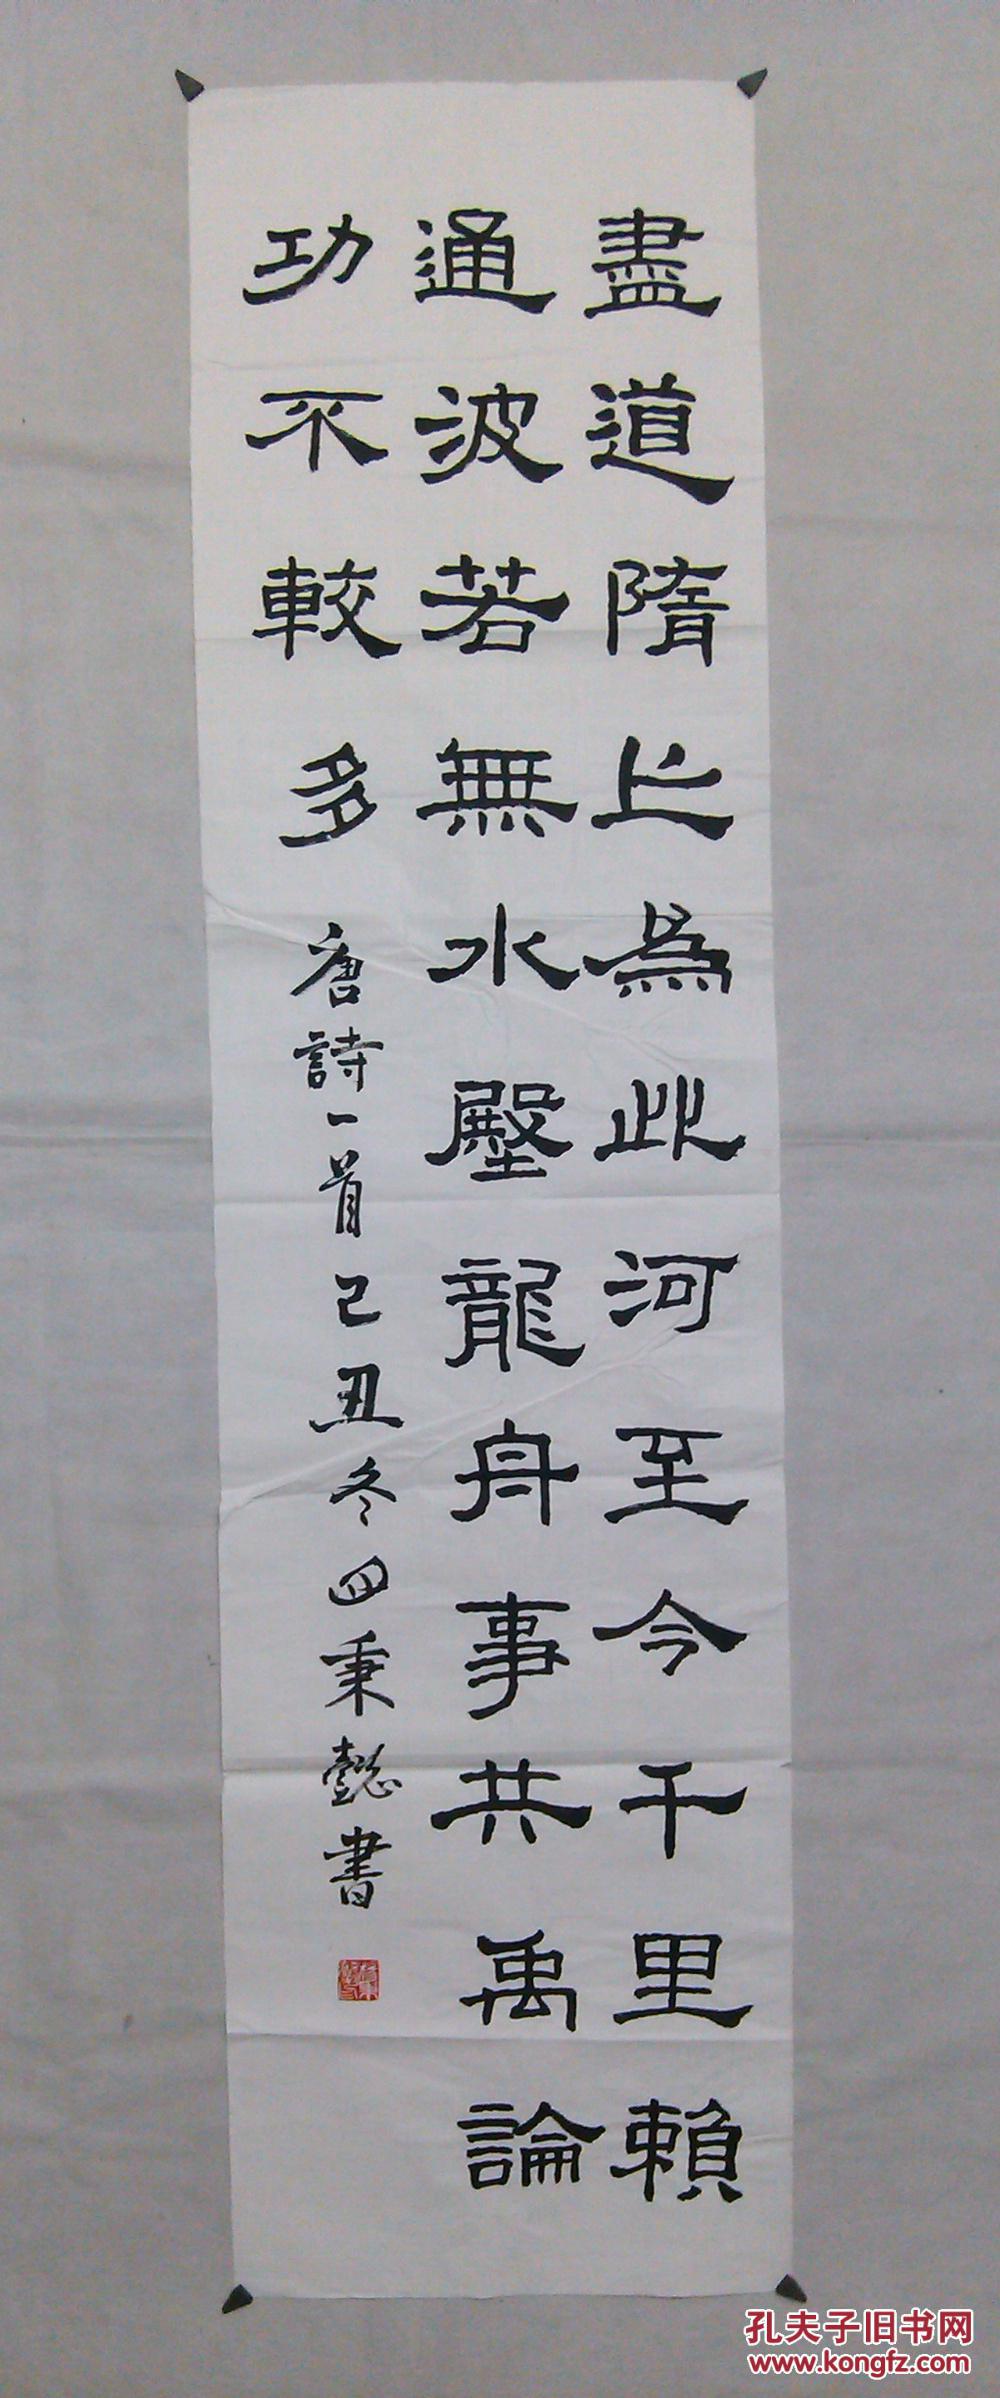 盡道隋亡為此河至今千里賴
通波若無水壂龍舟事共禹論
功不較多 唐詩一首己丑冬秉懿書
孔夫子旧书网
www.kongfz.com